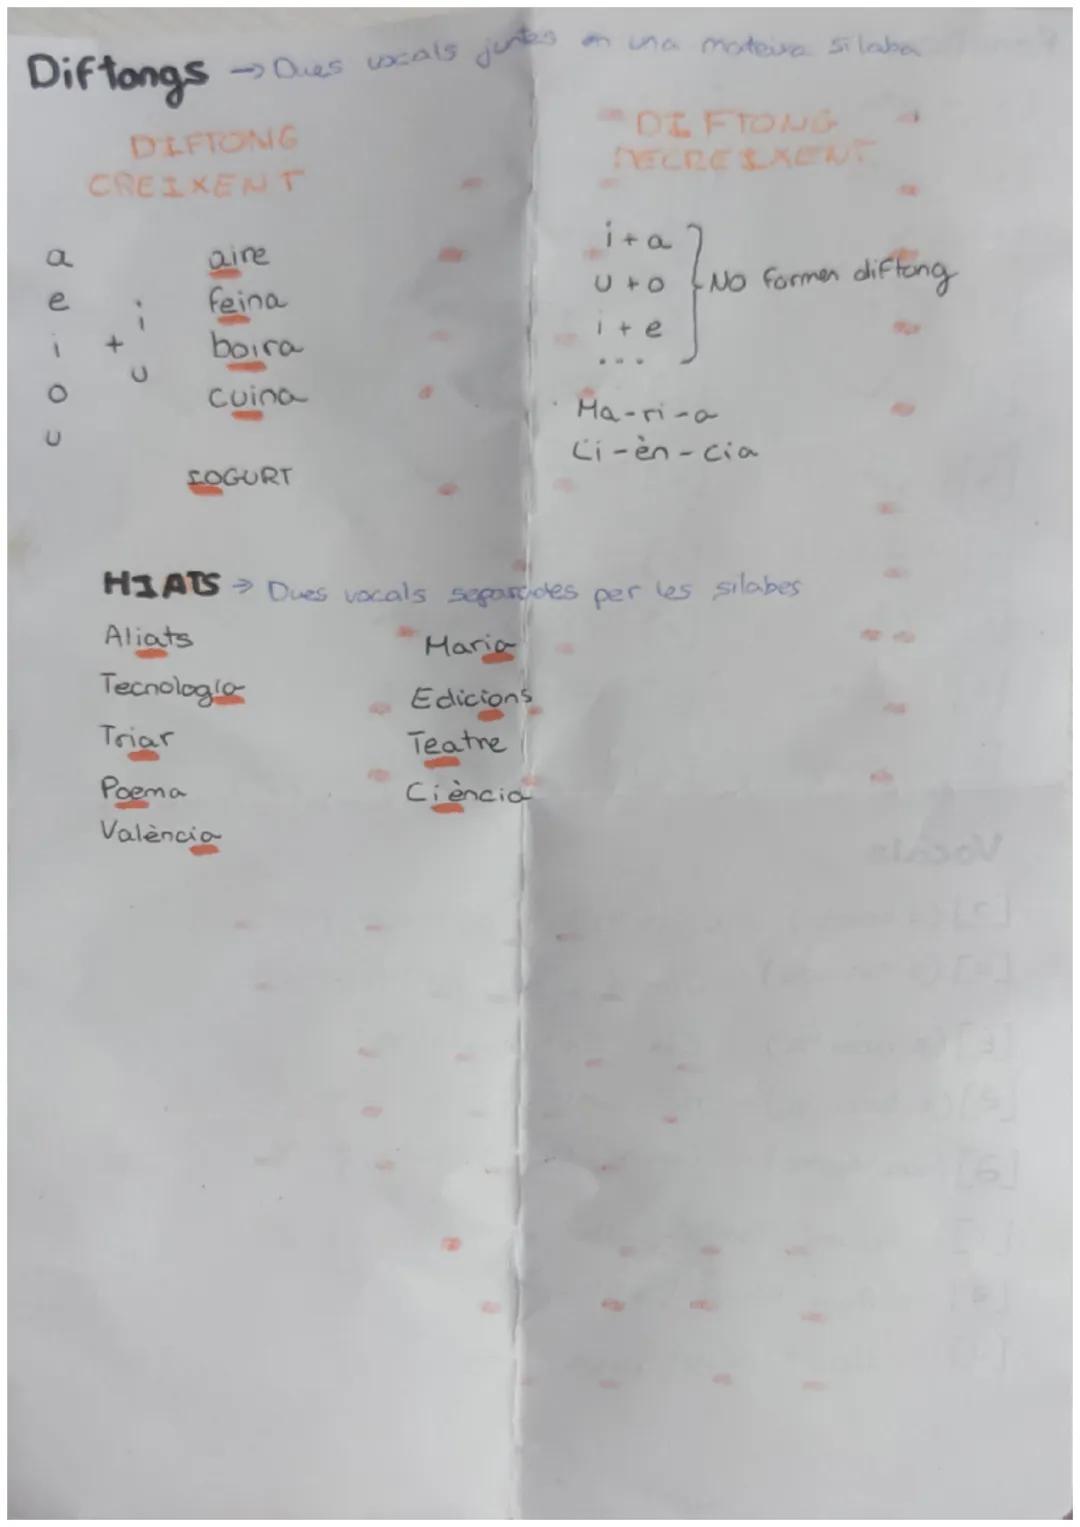 Diftongs → Dues vocals juntes en una mateixa sílaba
DIFTONG
CREIXENT
a
e
i
o
u
+
i
u
aire
feina
boira
cuina
IOGURT
DIFTONG
DECREIXENT
i + a
u + o
i + e
...
No formen diftong
Ma-ri-a
Ci-èn-cia
HIATS → Dues vocals separades per les sílabes
Aliats
Tecnologia
Triar
Poema
València
Maria
Edicions
Teatre
Ciència
Vocals